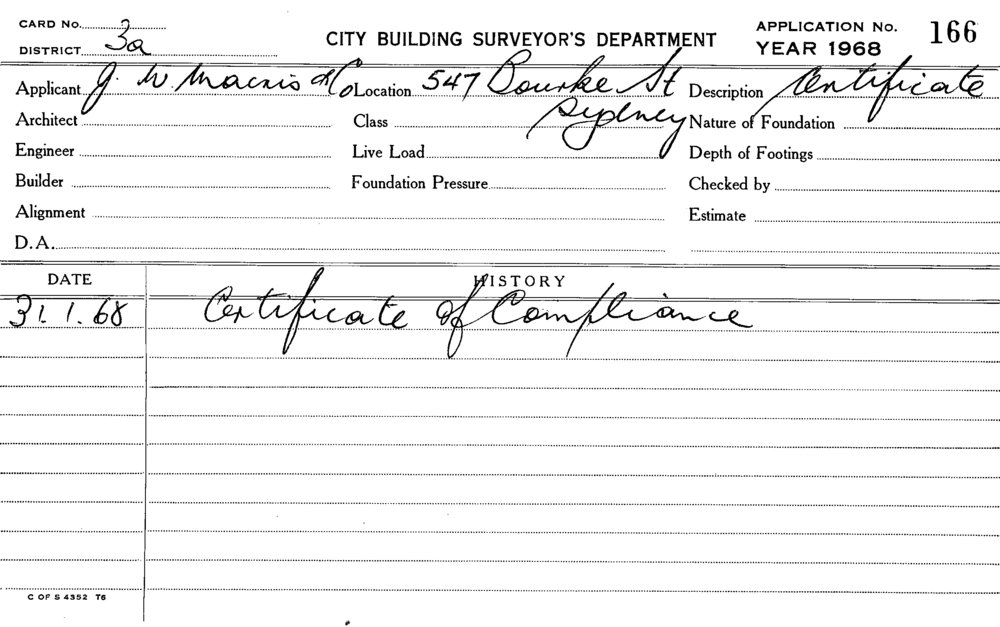 CARD No.
DISTRICT 3a
CITY BUILDING SURVEYOR'S DEPARTMENT
APPLICATION No. 166
YEAR 1968
Applicant J. W. Macris & Co Location 547 Bourke St Sydney Description Certificate
Architect Class Nature of Foundation
Engineer Live Load Depth of Footings
Builder Foundation Pressure Checked by
Alignment Estimate
D.A.
DATE HISTORY
31.1.68 Certificate of Compliance
C OF S 4352 T6